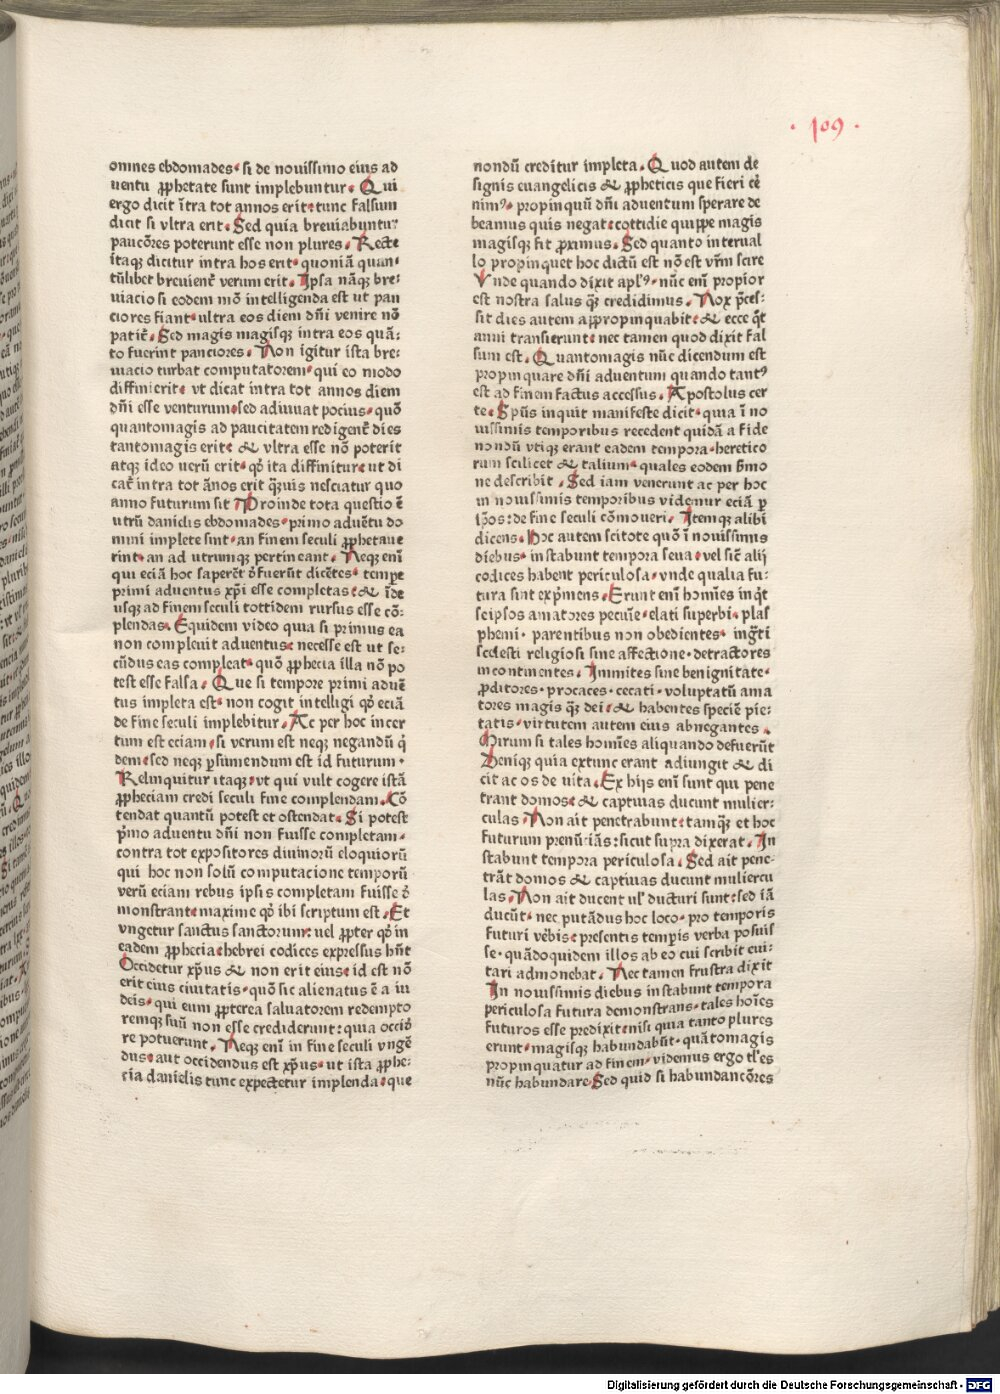 · 109 ·
omnes ebdomades· si de nouissimo eius ad
uentu ꝓphetate sunt implebuntur· Qui
ergo dicit ĩtra tot annos erit· tunc falsum
dicit si vltra erit· Sed quia breuiabuntur
paucõres poterunt esse non plures· Recte
itaqꝫ dicitur intra hos erit· quoniã quan-
tũlibet breuient̃ verum erit· Ipsa nãqꝫ bre-
uiacio si eodem mõ intelligenda est ut pau
ciores fiant· ultra eos diem dñi venire nõ
patit̃· Sed magis magisqꝫ intra eos quã-
to fuerint panciores· Non igitur ista bre-
uiacio turbat computatorem· qui eo modo
diffinierit· vt dicat intra tot annos diem
dñi esse venturum· sed adiuuat pocius· quõ
quantomagis ad paucitatem redigent̃ dies
tantomagis erit· & vltra esse nõ poterit
atqꝫ ideo uerũ erit· qđ ita diffinitur· ut di
cat̃ intra tot ãnos erit qꝫuis nesciatur quo
anno futurum sit Proinde tota questio ẽ
utrũ danielis ebdomades· primo aduẽtu do
mini implete sint· an finem seculi ꝓphetaue
rint· an ad utrumque pertineant· Neqꝫ eni᷉
qui eciã hoc saperẽt đfuerũt dicẽtes· tempe
primi aduentus xp̃i esse completas· & ĩde
usqꝫ ad finem seculi tottidem rursus esse cõ-
plendas· Equidem video quia si primus ea
non compleuit aduentus· necesse est ut se-
cũdus eas compleat· quõ ꝓphecia illa nõ po
test esse falsa· Que si tempore primi aduẽ
tus impleta est· non cogit intelligi qđ eciã
de fine seculi implebitur· Ac per hoc incer
tum est eciam· si verum est neqꝫ negandũ q̇
dem· sed neqꝫ p̃sumendum est id futurum·
Relinquitur itaqꝫ· vt qui vult cogere istã
ꝓpheciam credi seculi fine complendam· Cõ
tendat quantũ potest et ostendat· Si potest
p̃mo aduentu dñi non fuisse completam·
contra tot expositores diuinorũ eloquiorũ
qui hoc non solũ computacione temporũ
verũ eciam rebus ipsis completam fuisse đ
monstrant· maxime qđ ibi scriptum est· Et
vngetur sanctus sanctorum· uel ꝓpter qđ in
eadem ꝓphecia· hebrei codices expressus hñt
Occidetur xp̃us & non erit eius· id est nõ
erit eius ciuitatis· quõ sic alienatus ẽ a iu
deis· qui eum ꝓpterea saluatorem redempto
remqꝫ suũ non esse crediderunt· quia occiđ
re potuerunt· Neqꝫ eni᷉ in fine seculi vngẽ
dus· aut occidendus est xp̃us· ut ista ꝓphe-
cia danielis tunc expectetur implenda· que
nondũ creditur impleta· Quod autem de
signis euangelicis & ꝓpheticis que fieri cẽ
nimꝰ· propinquũ dñi aduentum sperare de
beamus quis negat· cottidie quippe magis
magisqꝫ fit ꝓximus· Sed quanto interual
lo propinquet hoc dictũ est nõ est vr̃m scire
Vnde quando dixit aplꝰ· nũc eni᷉ propior
est nostra salus qꝫ credidimus· Nox p̃ces-
sit dies autem appropinquabit· & ecce q̃t
anni transierunt· nec tamen quod dixit fal
sum est· Quantomagis nũc dicendum est
propinquare dñi aduentum quando tantꝰ
est ad finem factus accessus· Apostolus cer
te· Spũs inquit manifeste dicit· quia ĩ no
uissimis temporibus recedent quidã a fide
nondũ vtiqꝫ erant eadem tempora· heretico
rum scilicet & talium· quales eodem ẜmo
ne describit· Sed iam venerunt ac per hoc
in nouissimis temporibus videmur eciã ꝑ
ip̃os· de fine seculi cõmoueri· Itemqꝫ alibi
dicens· Hoc autem scitote quõ ĩ nouissimis
diebus· instabunt tempora seua· vel sic̃ alij
codices habent periculosa· vnde qualia fu-
tura sint exp̃mens· Erunt eni᷉ homĩes inq̃t
seipsos amatores pecuĩe· elati superbi· plas
phemi· parentibus non obedientes· ingr̃ti
scelesti religiosi sine affectione· detractores
incontinentes· Inmites sine benignitate·
ꝓditores· procaces· cecati· voluptatũ ama
tores magis qꝫ dei· & habentes speciẽ pie-
tatis· virtutem autem eius abnegantes·
Mirum si tales homĩes aliquando defuerũt
Deniqꝫ quia extunc erant adiungit & di
cit ac os de uita· Ex hijs eni᷉ sunt qui pene
trant domos· & captiuas ducunt mulier-
culas· Non ait penetrabunt· tamqꝫ et hoc
futurum prenũciãs· sicut supra dixerat· In
stabunt tempora periculosa· Sed ait pene-
trãt domos & captiuas ducunt muliercu
las· Non ait ducent uł ducturi sunt· sed iã
ducũt· nec putãdus hoc loco· pro temporis
futuri vẽbis· presentis tempis verba posuis
se· quãdoquidem illos ab eo cui scribit eui-
tari admonebat· Nec tamen frustra dixit
In nouissimis diebus instabunt tempora
periculosa futura demonstrans· tales hoĩes
futuros esse predixit· nisi quia tanto plures
erunt· magisqꝫ habundabũt· quãtomagis
propinquatur ad finem· videmus ergo tl̃es
nũc habundare· Sed quid si habundancõres
Digitalisierung gefördert durch die Deutsche Forschungsgemeinschaft - DFG